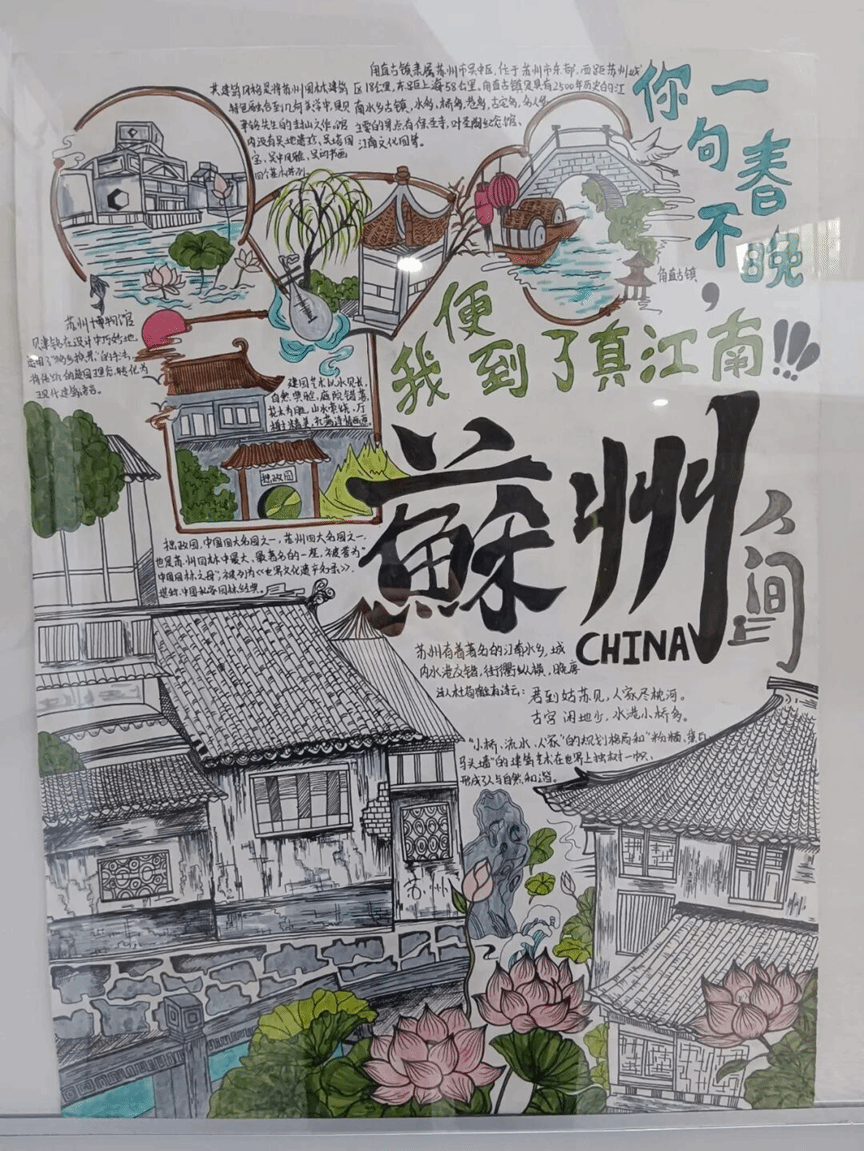 甪直古镇隶属苏州市吴中区,位于苏州市东部,西距苏州城
区18公里,东距上海58公里,甪直古镇是具有2500年历史的江
南水乡古镇,水多,桥多,巷多,古宅多,名人多
主要的景点有保圣寺,叶圣陶纪念馆、
江南文化园等。
其建筑风格是将苏州园林建筑
特色融合到几何美学中,是贝
聿铭先生的封山之作。馆
你一句春不晚,
我便到了真江南!!!
甪直古镇
苏州博物馆
贝聿铭在设计中巧妙地
现代建筑语言。
建园艺术以水见长,
自然典雅,庭院错落,
花木为胜,山水萦绕,厅
榭精美,充满诗情画意。
拙政园
拙政园,中国四大名园之一,苏州四大名园之一
也是苏州园林中最大、最著名的一座,被誉为"
中国园林之母",被列为《世界文化遗产名录》.
堪称中国私家园林经典。
蘇州
CHINA
人间
苏州有着著名的江南水乡,城
内水港交错,街衢纵横,晚唐
诗人杜荀鹤有诗云:君到姑苏见,人家尽枕河。
古宫闲地少,水港小桥多。
"小桥、流水、人家"的规划格局和"粉墙、黛瓦
马头墙"的建筑艺术在世界上独树一帜、
形成了人与自然和谐。
苏州